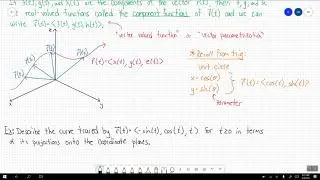 If x(t), y(t), and z(t) are the components of the vector r(t), then x, y, and z
real valued functions called the component functions of r(t) and we can
write r(t) = <x(t), y(t), z(t)>.
"vector valued function" or "vector parametrization"
r(t) = <x(t), y(t), z(t)>
r(t)
r(t)
r(t)
z
x
y
* Recall from trig:
unit circle
x = cos(θ)
y = sin(θ)
r(t) = <cos(t), sin(t)>
parameter
Ex: Describe the curve traced by r(t) = <-sin(t), cos(t), t> for t≥0 in terms
of its projections onto the coordinate planes.